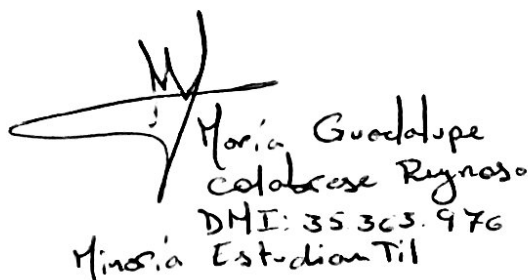 María Guadalupe
Calabrese Reynoso
DNI: 35.363.976
Minoría Estudiantil